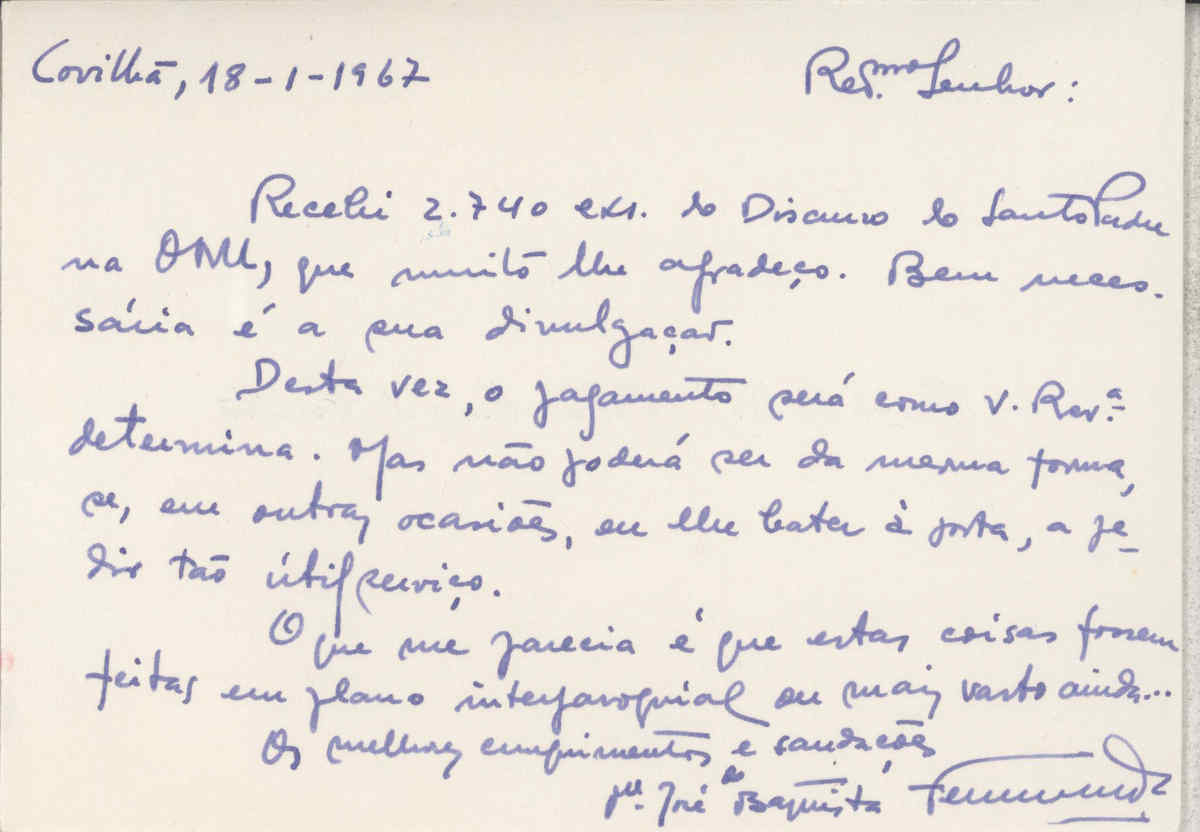 Covilhã, 18-1-1967
Revmo. Senhor:
Recebi 2.740 exs. do Discurso do Santo Padre
na ONU, que muito lhe agradeço. Bem neces-
sária é a sua divulgação.
Desta vez, o pagamento será como V. Rev.ª
determina. Mas não poderá ser da mesma forma,
se, em outras ocasiões, eu lhe bater à porta, a pe-
dir tão útil serviço.
O que me parecia é que estas coisas fossem
feitas em plano interparoquial ou mais vasto ainda...
Os melhores cumprimentos e saudações
Pe. José Baptista Fernandes